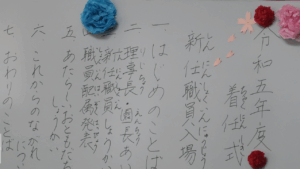 令和五年度
着任式
新任職員入場
一 はじめのことば
二 理事長・園長あい
新任職員しょうか
職員配属発表
五 あたらしいおともだち
しょうかい
六 これからのながれ
につい
七 おわりのことば